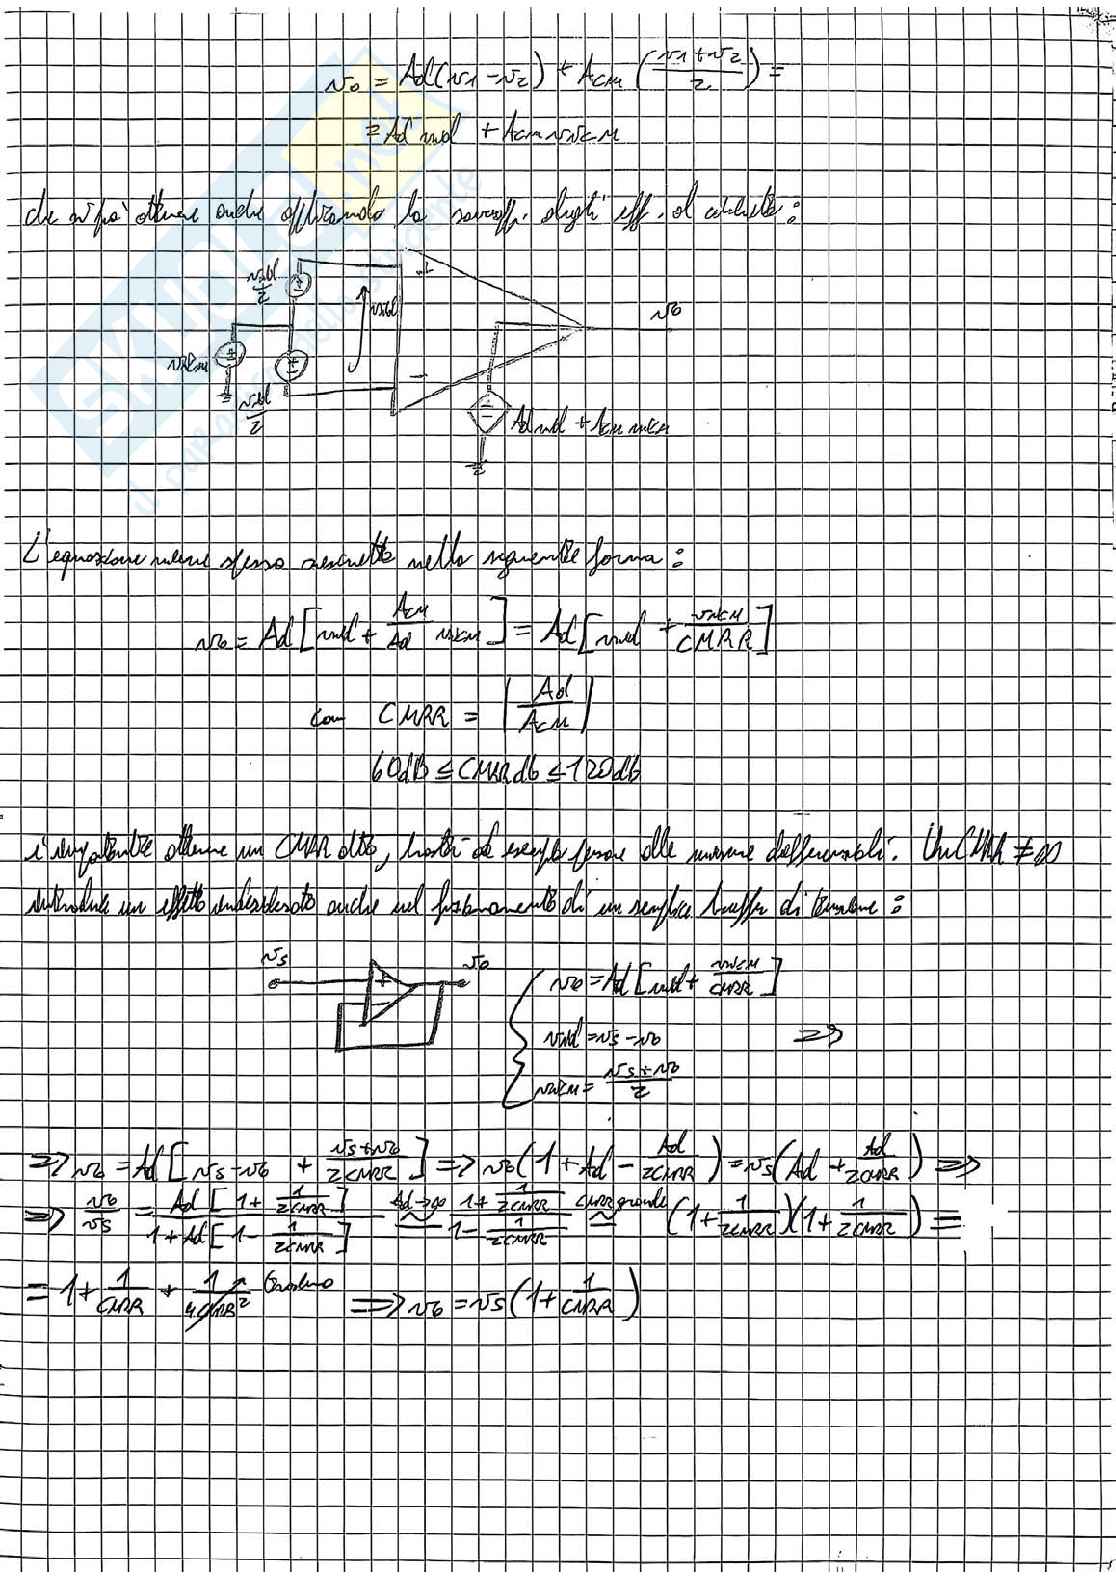 v0 = Ad(v1 - v2) + Acm (v1 + v2 / 2) =
= Ad vid + Acm vicm
che si può ottenere anche applicando la sovrapp. degli eff. al circuito:
vid/2
+
vid
v0
vicm
vid/2
-
Ad vid + Acm vicm
L'equazione viene spesso riscritta nella seguente forma:
v0 = Ad [vid + Acm/Ad vicm] = Ad [vid + vicm/CMRR]
con CMRR = |Ad/Acm|
60dB ≤ CMRRdb ≤ 120db
È importante ottenere un CMRR alto, basti ad esempio pensare alle misure differenziali. Un CMRR ≠ ∞
introduce un effetto indesiderato anche nel funzionamento di un semplice buffer di tensione:
vs
v0
+
v0 = Ad [vid + vicm/CMRR]
vid = vs - v0 ⇒
vicm = vs + v0 / 2
⇒ v0 = Ad [vs - v0 + vs+v0/2CMRR] ⇒ v0 (1 + Ad - Ad/2CMRR) = vs (Ad + Ad/2CMRR) ⇒
⇒ v0/vs = Ad [1 + 1/2CMRR] / 1 + Ad [1 - 1/2CMRR] Ad→∞ ≃ 1 + 1/2CMRR / 1 - 1/2CMRR CMRR grande ≃ (1 + 1/2CMRR)(1 + 1/2CMRR) =
= 1 + 1/CMRR + 1/4CMRR² ⇒ v0 = vs (1 + 1/CMRR)